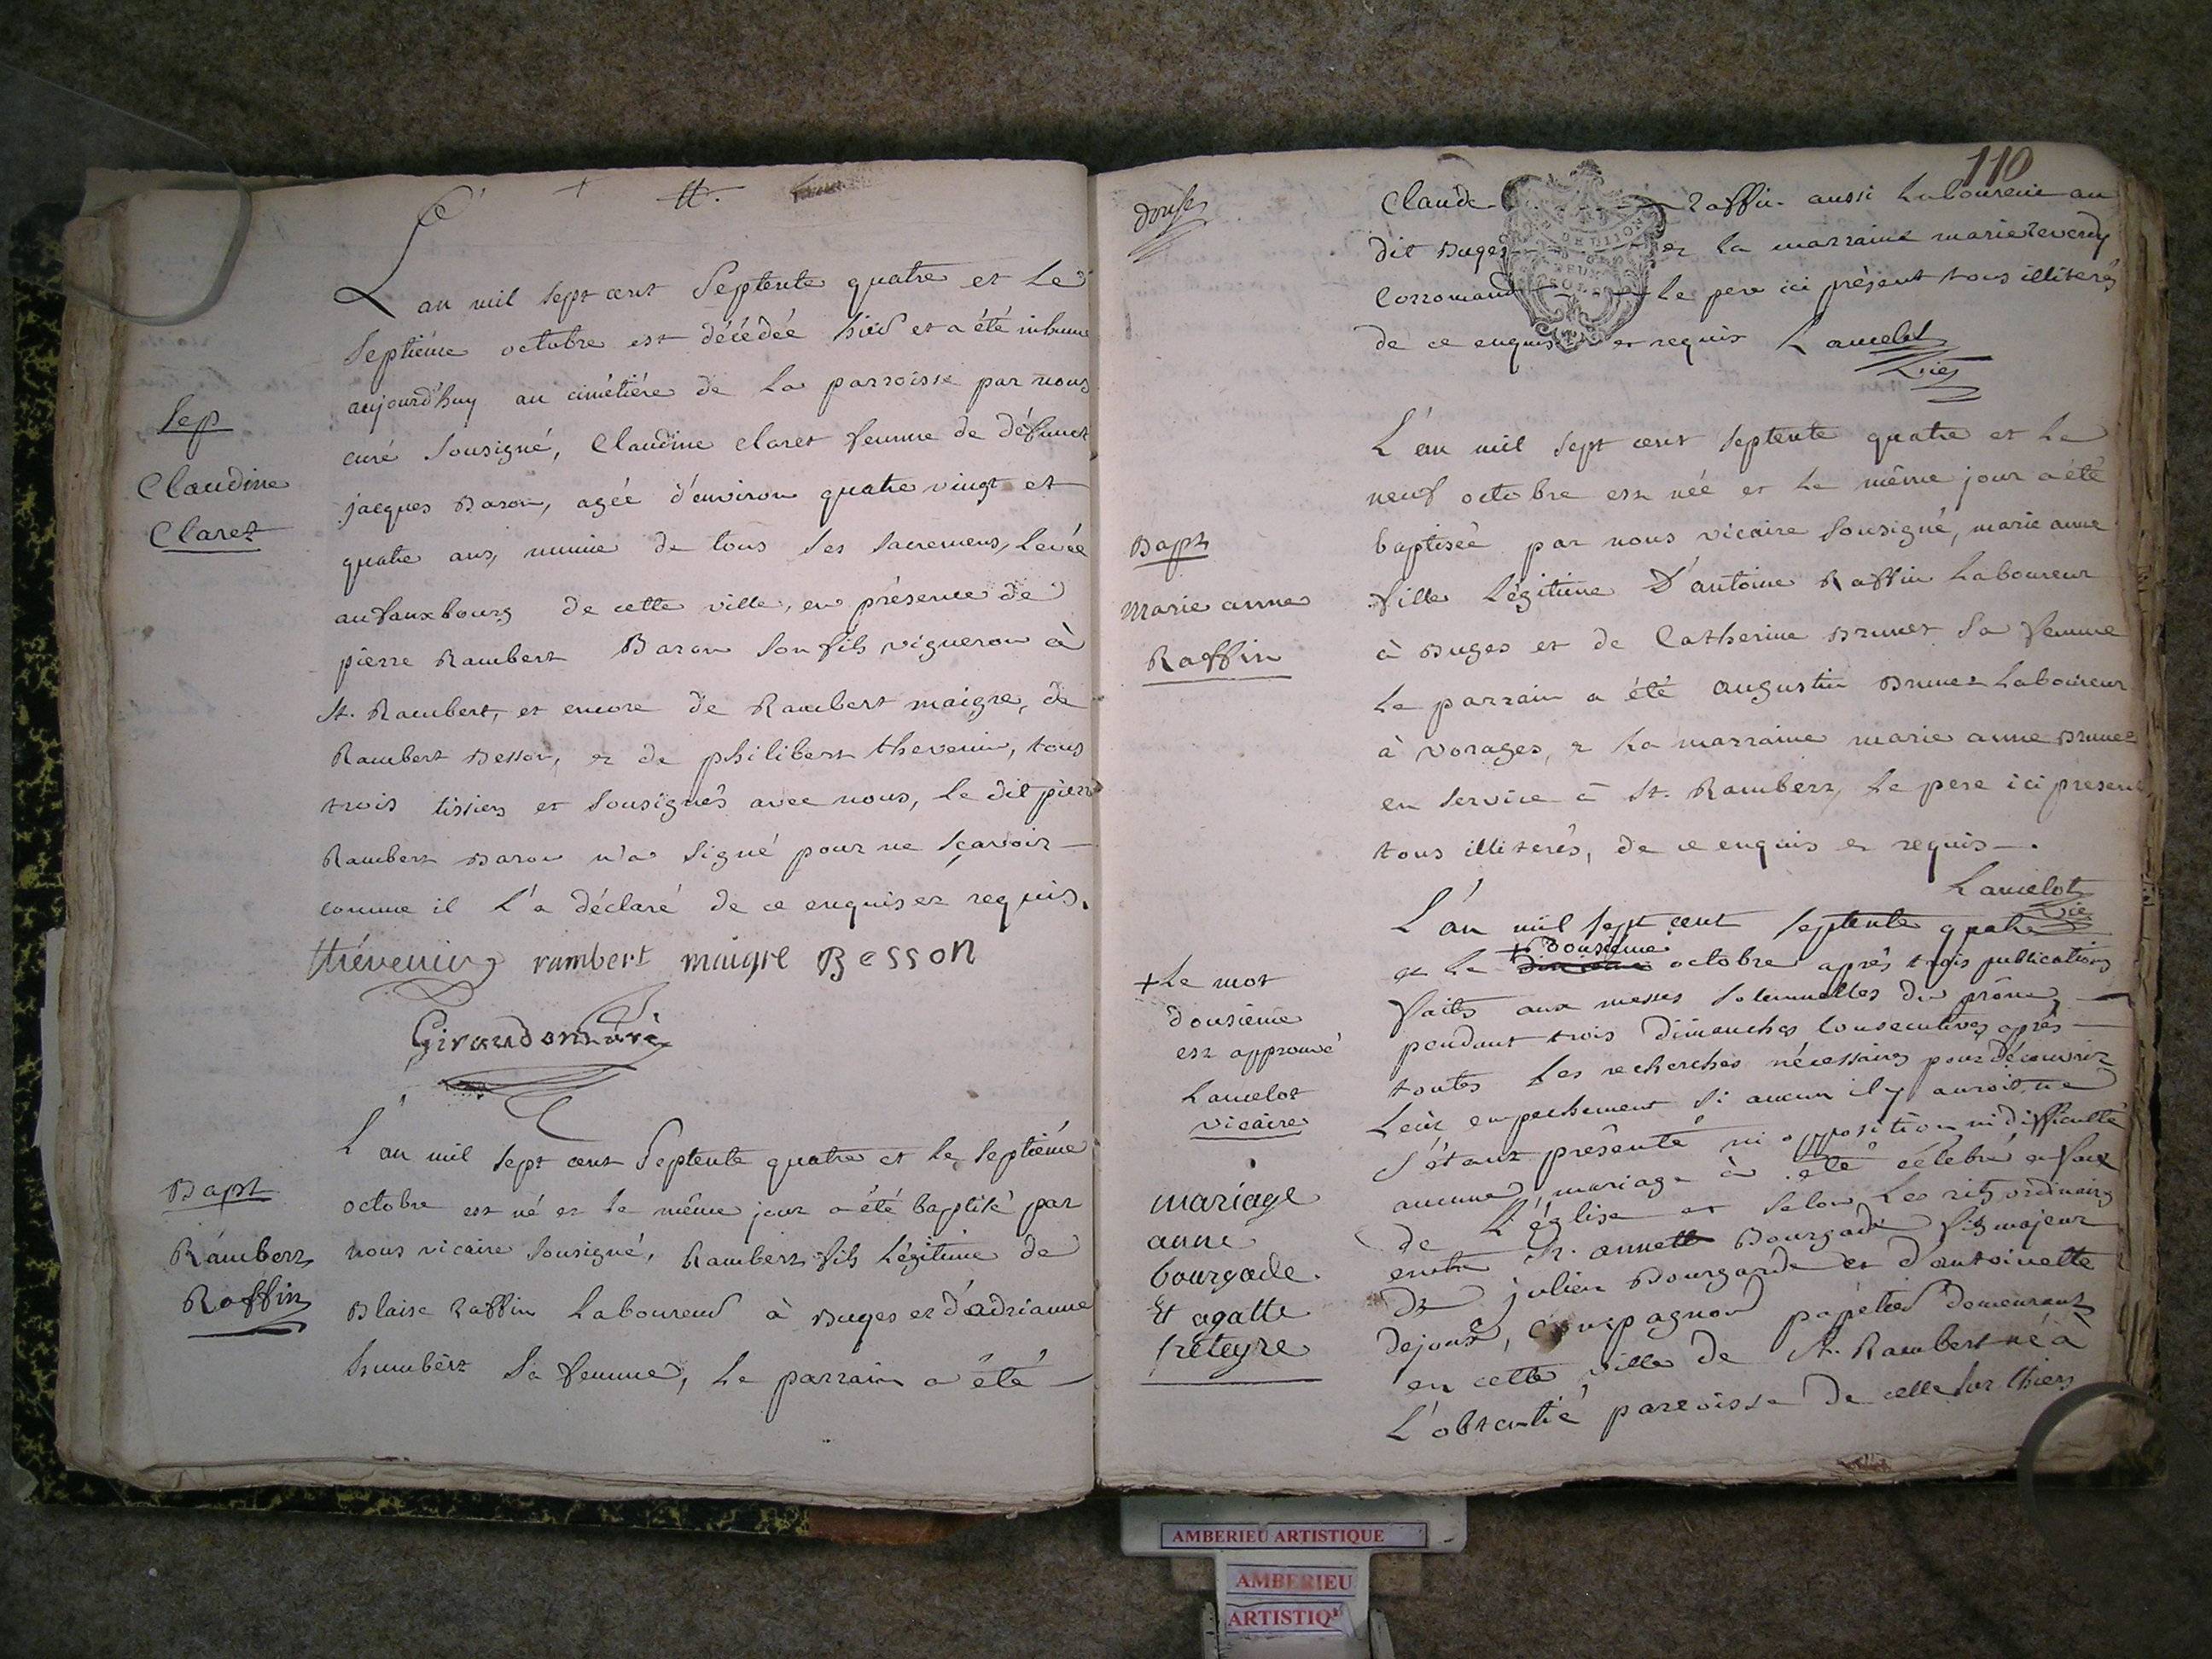 L'an mil sept cent Septente quatre et le
Septiéme octobre est décédée hier et a été inhumé
aujourd'huy au cimétiére de la parroisse par nous
Sep
curé Sousigné, Claudine Claret femme de défunct
Claudine
jacques Baron, agée d'environ quatre vingt et
Claret
quatre ans, munie de tous ses sacremens, levée
au fauxbourg de cette ville, en présence de
pierre Rambert Baron son fils vigneron à
St. Rambert, et encore de Rambert maigre, de
Rambert Besson, et de philibert thevenin, tous
trois tissiers et sousignés avec nous, le dit pierre
Rambert Baron n'a signé pour ne sçavoir
comme il l'a déclaré de ce enquis et requis.
thévenin rambert maigre Besson
L'an mil sept cent Septente quatre et le septiéme
Bapt
octobre est né et le même jour a été baptisé par
Rambert
nous vicaire sousigné, Rambert fils légitime de
Raffin
Blaise raffin laboureur à Buges et d'adrianne
humbert sa femme, le parrain a été
110
douse
Claude raffin aussi laboureur au
dit Buges et la marraine marie reverdy
le pere ici présent tous illiterés
de ce enquis et requis Lancelot
Vic
L'an mil sept cent septente quatre et le
neuf octobre est née et le même jour a été
Bapt
baptisée par nous vicaire sousigné, marie anne
Marie anne
fille légitime d'antoine Raffin laboureur
Raffin
à Buges et de Catherine Brunet sa femme
le parrain a été augustin Brunet laboureur
à vorages, et la marraine marie anne Brunet
en service à St. Rambert, le pere ici présent
tous illiterés, de ce enquis et requis.
Lancelot
Vic
L'an mil sept cent septente quatre
et le + dousieme octobre aprés trois publications
+ Le mot
dousieme
est approuvé
Lancelot
vicaire
faites aux messes solemnelles du prône
pendant trois dimanches consecutives aprés
toutes les recherches nécessaires pour découvrir
leur empechement si aucun il y auroit, ne
s'étant présenté ni opposition ni difficulté
aucune, mariage à été célébré en face
mariage
anne
bourgade
Et agatte
de L'église et selon les rits ordinaires
entre Sr. annet Bourgade fils majeur
de julien Bourgade et d'antoinette
dejoux, compagnon papétier demeurant
en cette ville de St. Rambert né à
parroisse de celle sur thiers
AMBERIEU ARTISTIQUE
AMBERIEU
ARTISTIQ